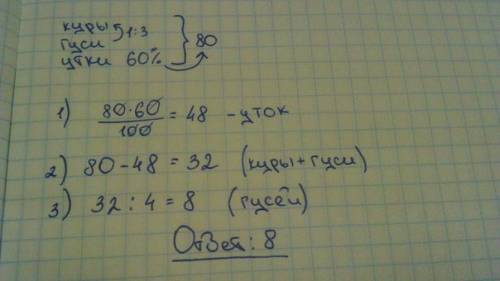 куры
гуси 1:3
утки 60% 80
1) 80·60/100 = 48 - уток
2) 80 - 48 = 32 (куры + гуси)
3) 32 : 4 = 8 (гусей)
Ответ: 8